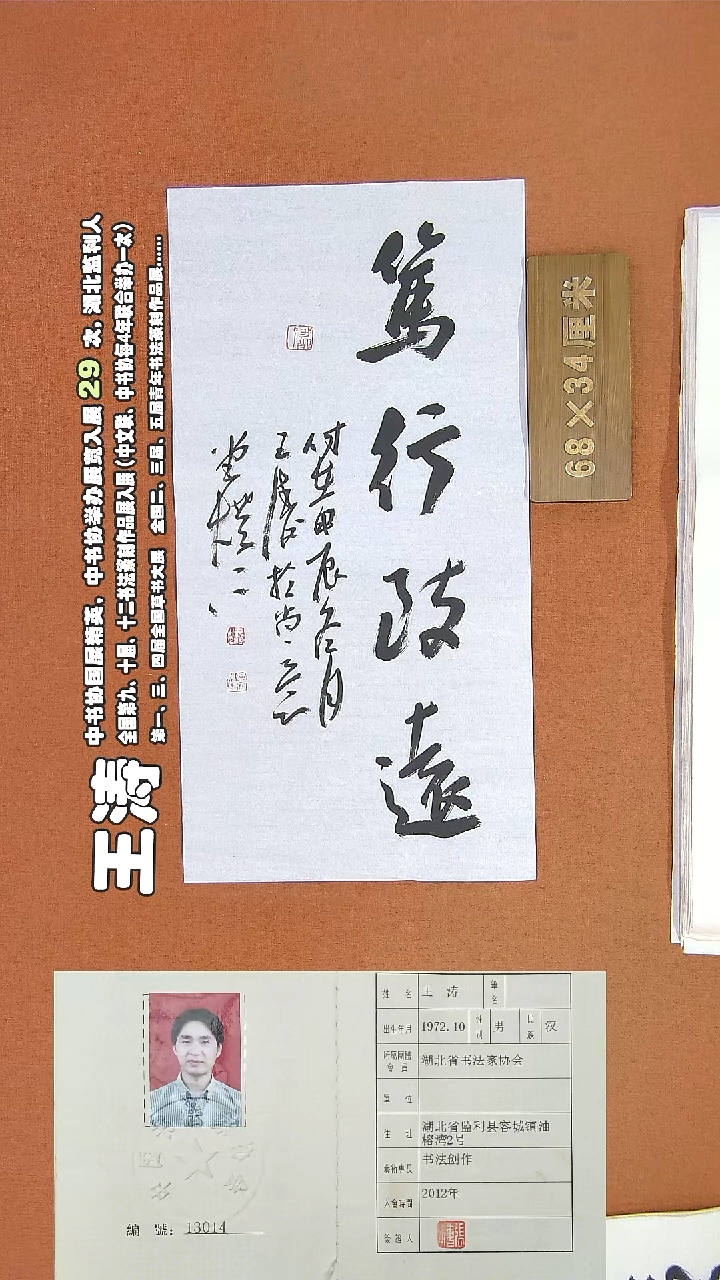 王涛
中书协国展精英，中书协举办展览入展 29 次，湖北监利人
全国第九、十届、十二书法篆刻作品展入展（中文联、中书协每4年联合举办一次）
第一、三、四届全国草书大展 全国二、三届、五届青年书法篆刻作品展……
篤行致遠
时在甲辰冬月
王涛於尚
堂
68×34厘米
姓名 王涛 筆名
出生年月 1972.10 性别 男 民族 汉
所屬團體會員 湖北省书法家协会
單位
住址 湖北省监利县容城镇油榨湾2号
藝術專長 书法创作
入會時間 2012年
編號：13014